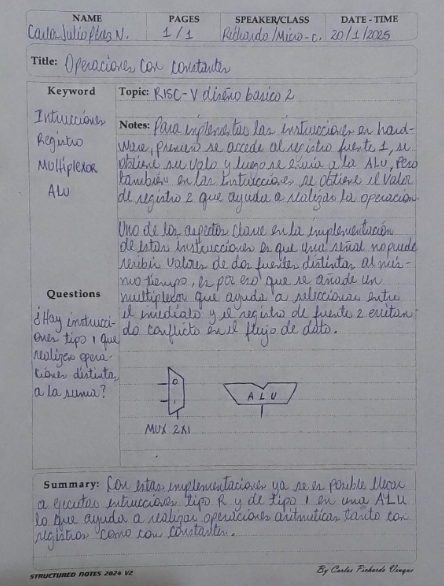 NAME PAGES SPEAKER/CLASS DATE - TIME
Carlos Julio Plas N. 1 / 1 Pichardo/Micro-c. 20/1/2025
Title: Operaciones con constantes
Keyword
Intrucciones
Registro
Multiplexor
ALU
Topic: RISC-V diseño basico 2
Notes: Para implementar las instrucciones en hard-
ware, primero se accede al registro fuente 1, se
obtiene su valo y luego se envia a la ALU, Pero
tambien en las instrucciones se obtiene el valor
de registro 2 que ayuda a realizar la operación
Uno de los aspectos clave en la implementación
de estas instrucciones es que una señal no puede
recibir valores de dos fuentes distintas al mis-
mo tiempo, es por eso que se añade un
multiplexor que ayuda a seleccionar entre
el inmediato y el registro de fuente 2 evitan-
do conflicto en el flujo de dato.
Questions
¿Hay instrucci-
ones tipo I que
realizen opera-
ciones distintas
a la suma?
0
1
MUX 2X1
ALU
Summary: Con estas implementaciones ya se es posible llegar
a ejecutar intrucciones tipo R y de tipo I en una ALU
lo que ayuda a realizar operaciones aritmeticas tanto con
registros como con constantes.
STRUCTURED NOTES 2024 V2
By Carlos Pichardo Vinque